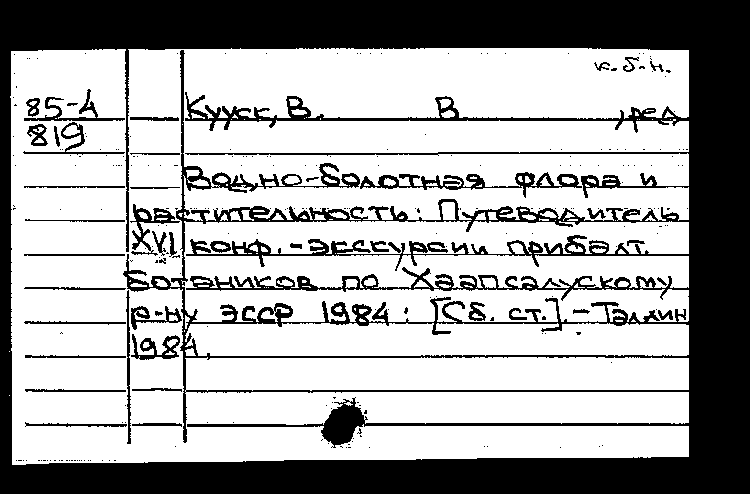 к.б.н.
85-4 Кууск, В. В ,ред
819
Водно-болотная флора и
растительность: Путеводитель
XVI конф.-экскурсии прибалт.
ботаников по Хаапсалускому
р-ну ЭССР 1984: [Сб. ст.].-Таллин
1984.